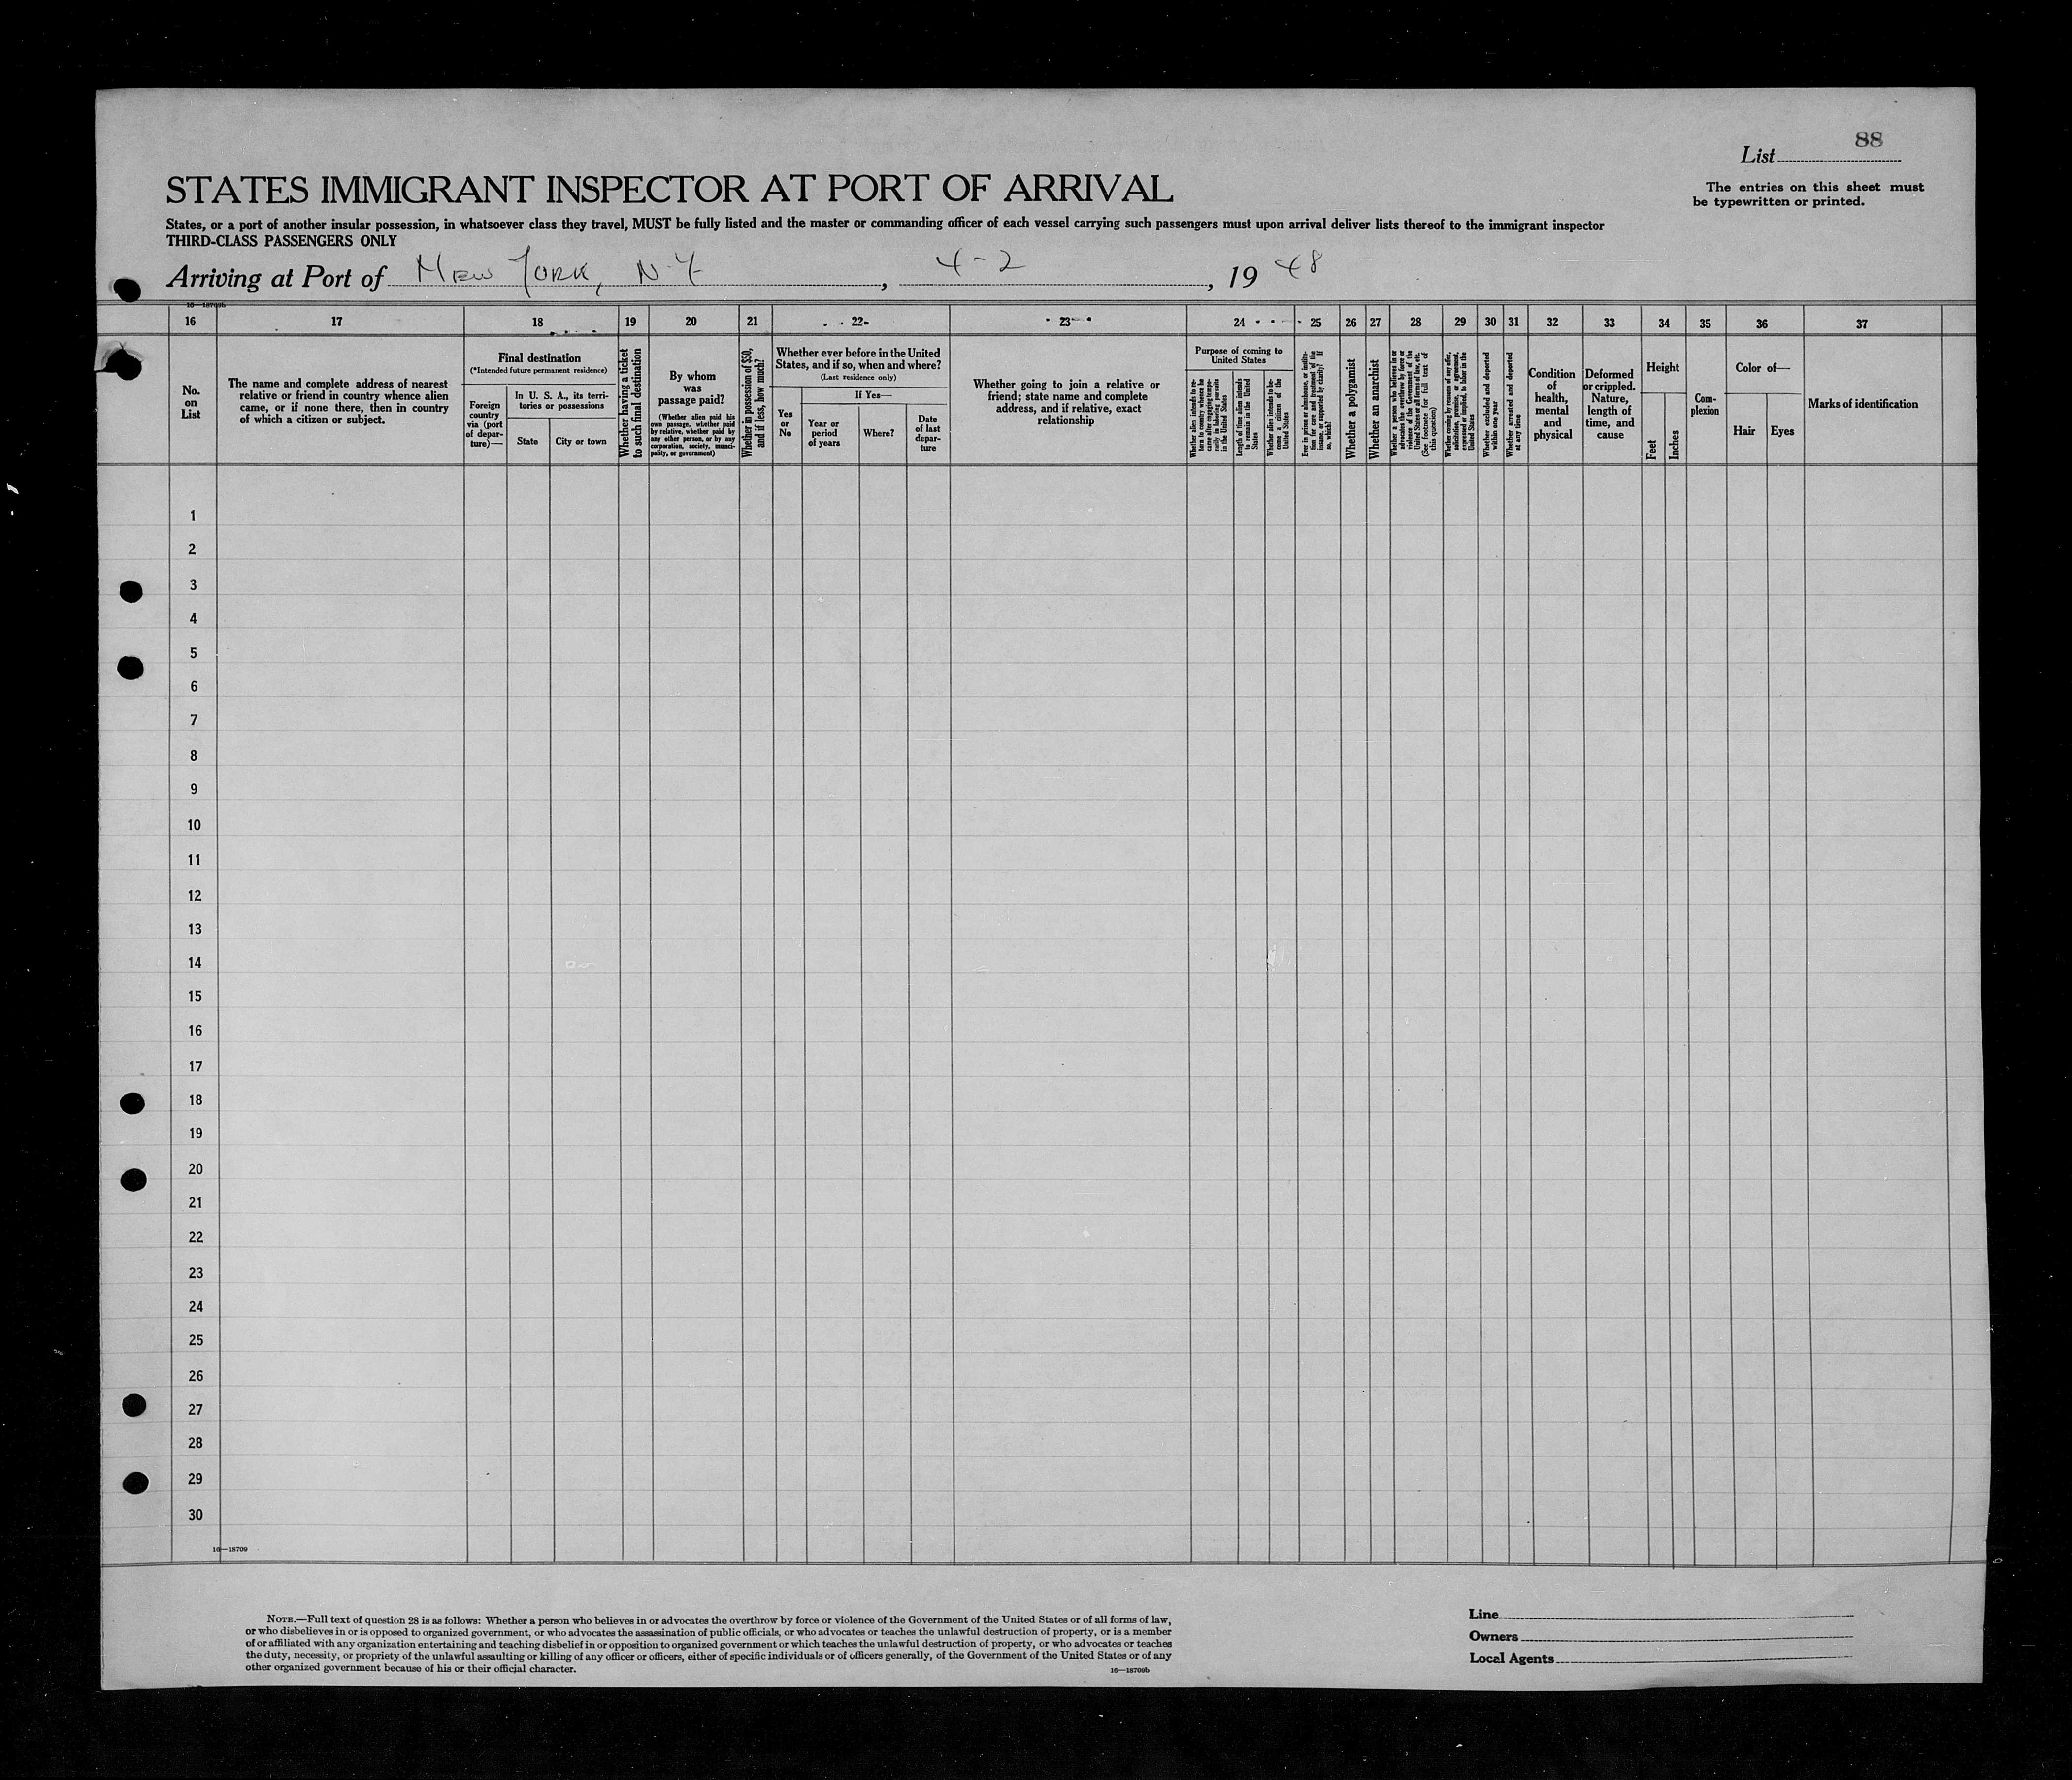 88
List
The entries on this sheet must
be typewritten or printed.
STATES IMMIGRANT INSPECTOR AT PORT OF ARRIVAL
States, or a port of another insular possession, in whatsoever class they travel, MUST be fully listed and the master or commanding officer of each vessel carrying such passengers must upon arrival deliver lists thereof to the immigrant inspector
THIRD-CLASS PASSENGERS ONLY
Arriving at Port of New York, N.Y., 4-2, 1948
16—18709b
16 17 18 19 20 21 22 23 24 25 26 27 28 29 30 31 32 33 34 35 36 37
No.
on
List
The name and complete address of nearest
relative or friend in country whence alien
came, or if none there, then in country
of which a citizen or subject.
Final destination
(*Intended future permanent residence)
Foreign
country
via (port
of depar-
ture)—
In U. S. A., its terri-
tories or possessions
State
City or town
Whether having a ticket
to such final destination
By whom
was
passage paid?
(Whether alien paid his
own passage, whether paid
by relative, whether paid by
any other person, or by any
corporation, society, munici-
pality, or government)
Whether in possession of $50,
and if less, how much?
Whether ever before in the United
States, and if so, when and where?
(Last residence only)
Yes
or
No
If Yes—
Year or
period
of years
Where?
Date
of last
depar-
ture
Whether going to join a relative or
friend; state name and complete
address, and if relative, exact
relationship
Purpose of coming to
United States
Whether alien intends to re-
turn to country whence he
came after engaging tempo-
rarily in laboring pursuits
in the United States
Length of time alien intends
to remain in the United
States
Whether alien intends to be-
come a citizen of the
United States
Ever in prison or almshouse, or institu-
tion for care and treatment of the
insane, or supported by charity? If
so, which?
Whether a polygamist
Whether an anarchist
Whether a person who believes in or
advocates the overthrow by force or
violence of the Government of the
United States or all forms of law, etc.
(See footnote for full text of
this question)
Whether coming by reasons of any offer,
solicitation, promise, or agreement,
expressed or implied, to labor in the
United States
Whether excluded and deported
within one year
Whether arrested and deported
at any time
Condition
of
health,
mental
and
physical
Deformed
or crippled.
Nature,
length of
time, and
cause
Height
Feet
Inches
Com-
plexion
Color of—
Hair
Eyes
Marks of identification
1
2
3
4
5
6
7
8
9
10
11
12
13
14
15
16
17
18
19
20
21
22
23
24
25
26
27
28
29
30
16—18709
NOTE.—Full text of question 28 is as follows: Whether a person who believes in or advocates the overthrow by force or violence of the Government of the United States or of all forms of law,
or who disbelieves in or is opposed to organized government, or who advocates the assassination of public officials, or who advocates or teaches the unlawful destruction of property, or is a member
of or affiliated with any organization entertaining and teaching disbelief in or opposition to organized government or which teaches the unlawful destruction of property, or who advocates or teaches
the duty, necessity, or propriety of the unlawful assaulting or killing of any officer or officers, either of specific individuals or of officers generally, of the Government of the United States or of any
other organized government because of his or their official character.
16—18709b
Line
Owners
Local Agents